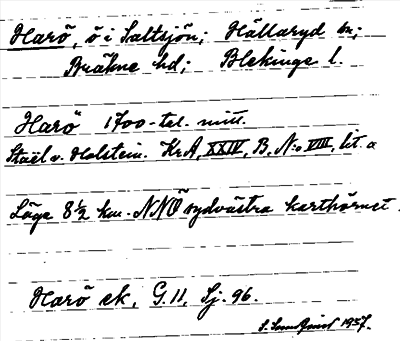 Harö, ö i Saltsjön; Hällaryd sn;
Bräkne hd; Blekinge l.
Harö 1700-tal. mitt.
Staël v. Holstein. KrA, XXIV, B, No VIII, lit. a
Läge 8½ km. NNÖ sydvästra karthörnet.
Harö ek, G.11, Sj. 96.
S. Sundqvist 1957.